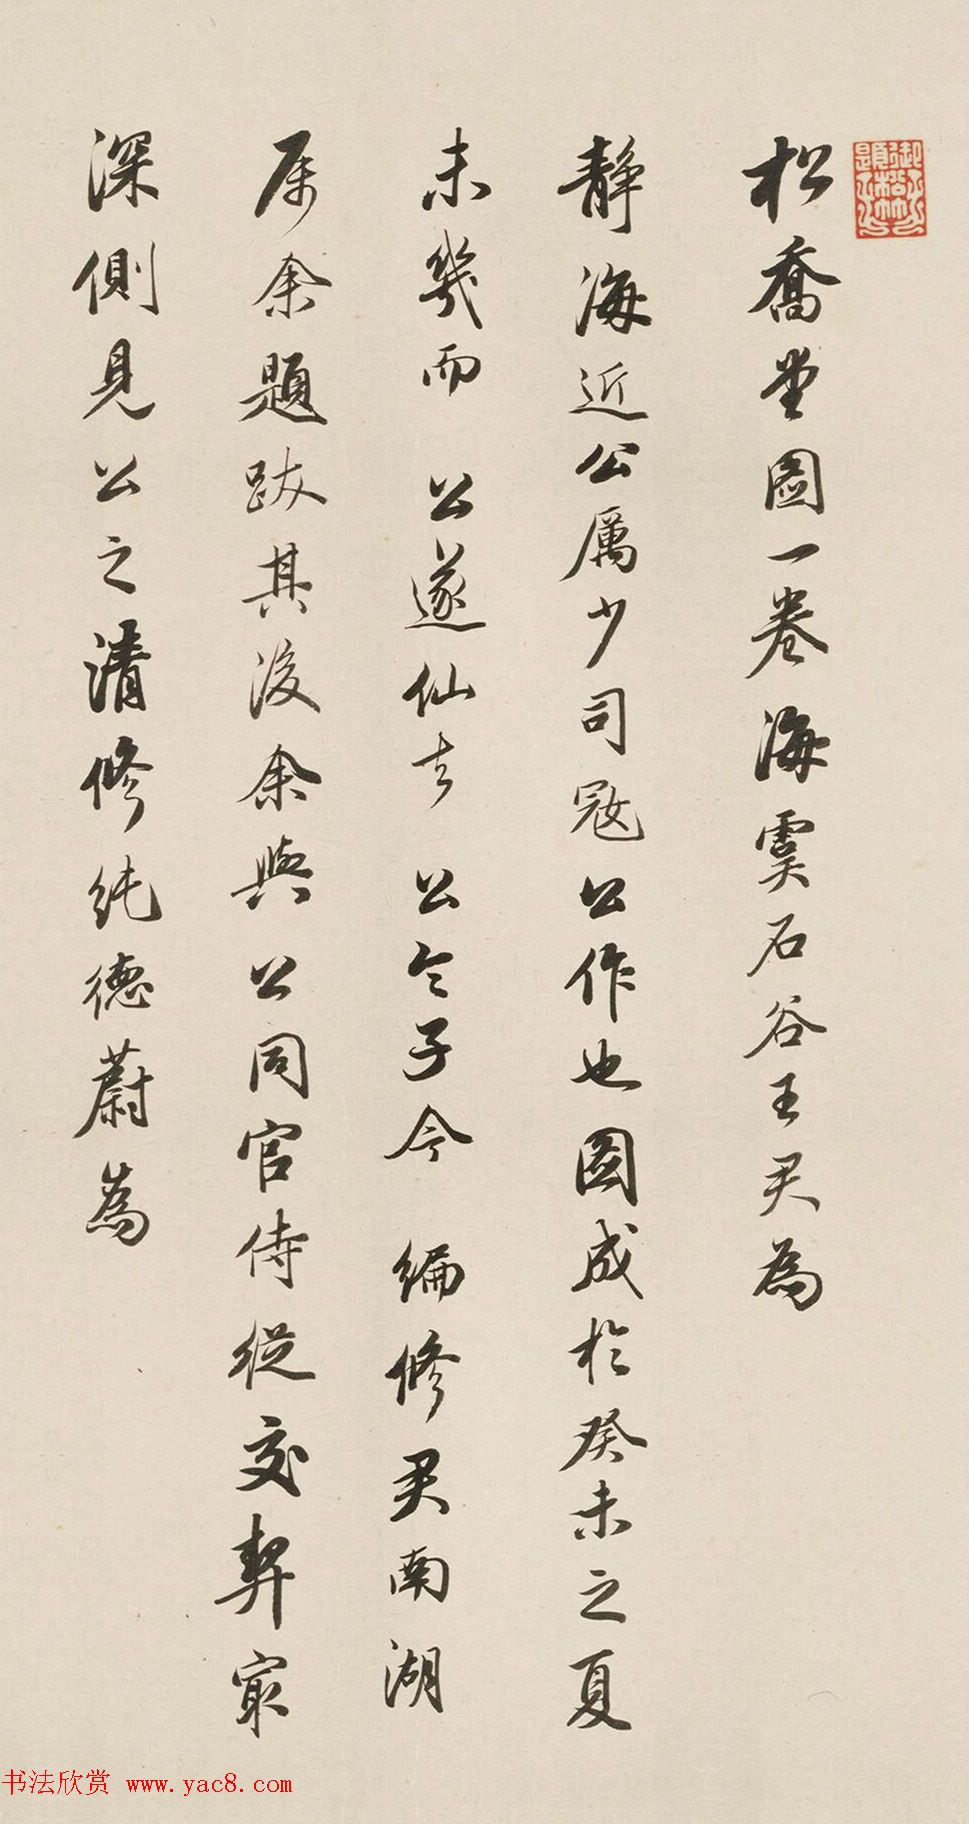 松喬堂圖一卷海虞石谷王君為
靜海近公厲少司寇公作也圖成於癸未之夏
未幾而公遂仙去公令子今編修君南湖
屬余題跋其後余與公同官侍從交契寂
深側見公之清修純德蔚為
书法欣赏 www.yac8.com